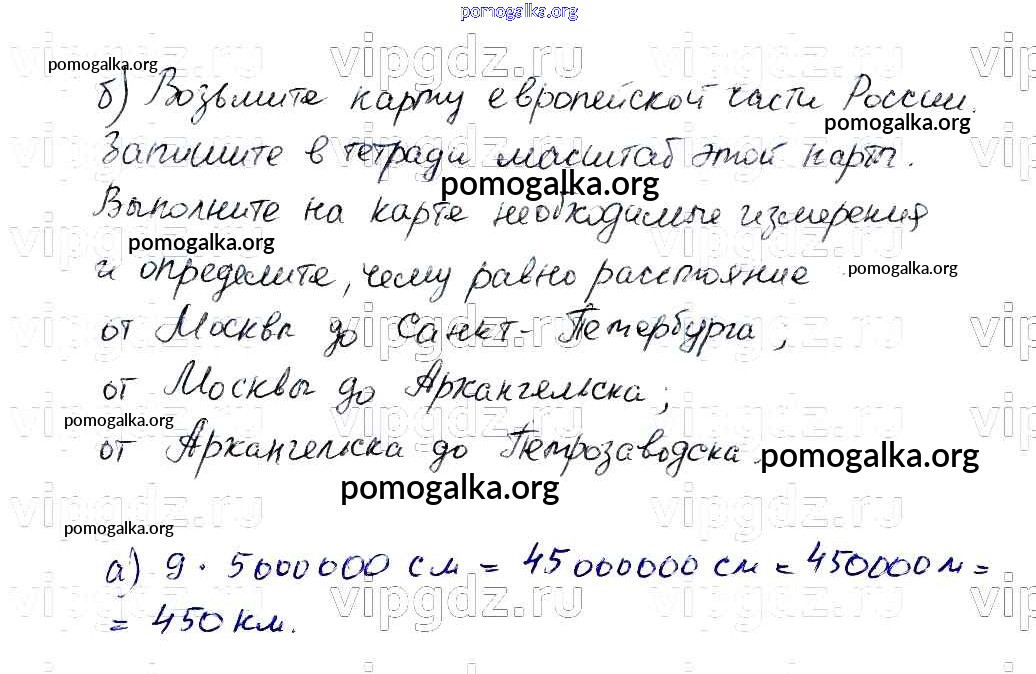 pomogalka.org
vipgdz.ru vipgdz.ru
pomogalka.org
б) Возьмите карту европейской части России.
pomogalka.org
Запишите в тетради масштаб этой карты.
pomogalka.org
Выполните на карте необходимые измерения
pomogalka.org
и определите, чему равно расстояние
pomogalka.org
от Москвы до Санкт-Петербурга;
от Москвы до Архангельска;
pomogalka.org
от Архангельска до Петрозаводска.
pomogalka.org
pomogalka.org
pomogalka.org
а) 9 · 5000000 см = 45000000 см = 450000 м =
= 450 км.
vipgdz.ru vipgdz.ru